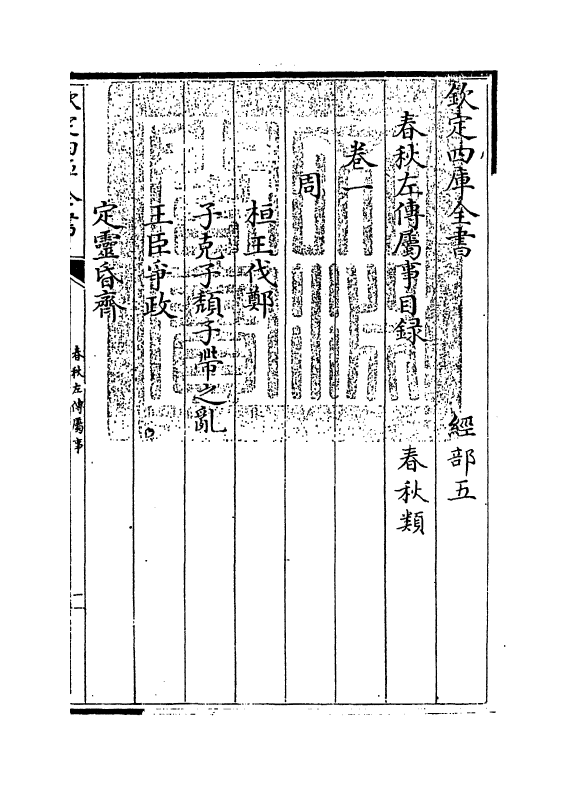 欽定四庫全書　經部五
春秋左傳屬事目録　春秋類
卷一
周
桓王伐鄭
子克子頽子帶之亂
王臣爭政
定靈昏齊
欽定四庫全書
春秋左傳屬事
一